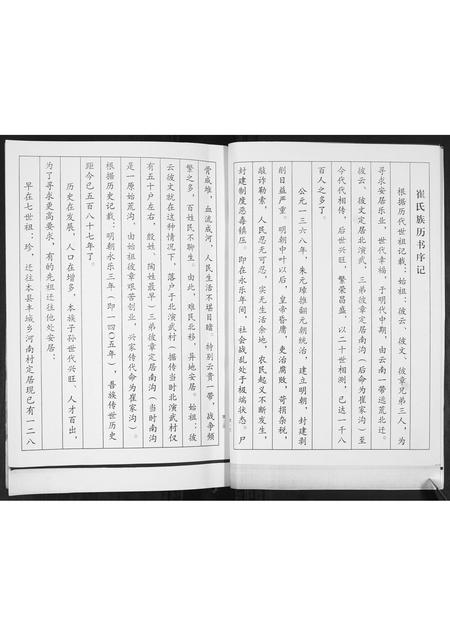 崔氏族历书序记
根据历代世祖记载：始祖：彼云、彼文、彼章兄弟三人，为
寻求安居乐业、世代幸福，于明代中期，由云南一带逃荒北迁。
彼云、彼文定居北演武，三弟彼章定居南沟（后命为崔家沟）至
今代代相传，后世兴旺，繁荣昌盛，以二十世相测，已达一千八
百人之多了。
公元一三六八年，朱元璋推翻元朝统治，建立明朝，封建剥
削日益严重。明朝中叶以后，皇帝昏庸，吏治腐败，苛捐杂税，
敲诈勒索，人民忍无可忍，实无生活余地，农民起义不断发生，
封建制度恶毒镇压。即在永乐年间，社会战乱处于极端状态。尸
骨成堆，血流成河，人民生活不堪目睹。特别云贵一带，战争频
繁之多，百姓民不聊生。由此，难民北移，异地安居。始祖：彼
云彼文就在这种情况下，落户于北演武村（据传当时北演武村仅
有五十户左右，殷姓、陶姓最早）三弟彼章定居南沟（当时南沟
是一原始荒沟，由始祖彼章艰苦创业，兴家传代命为崔家沟）。
根据历史记载：明朝永乐三年（即一四〇五年），吾族传世历史
距今已五百八十七年了。
历史在发展，人口在增多，本族子孙世代兴旺、人才百出，
为了寻求更高要求，有的先祖迁往他处安居。
早在七世祖：珍，迁往本县丰城乡河南村定居现已有一二八